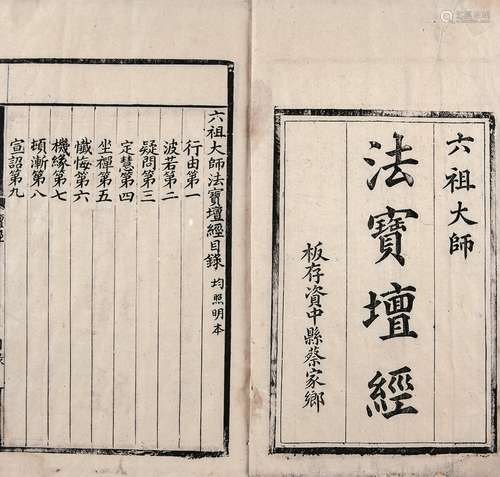 六祖大師
法寶壇經
板存資中縣蔡家鄉
六祖大師法寶壇經目錄 均照明本
行由第一
波若第二
疑問第三
定慧第四
坐禪第五
懺悔第六
機緣第七
頓漸第八
宣詔第九